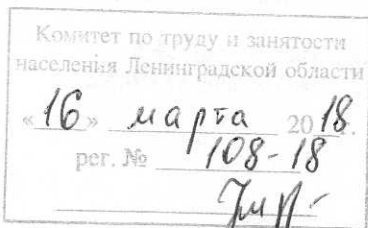 Комитет по труду и занятости
населения Ленинградской области
«16» марта 2018.
рег. № 108-18